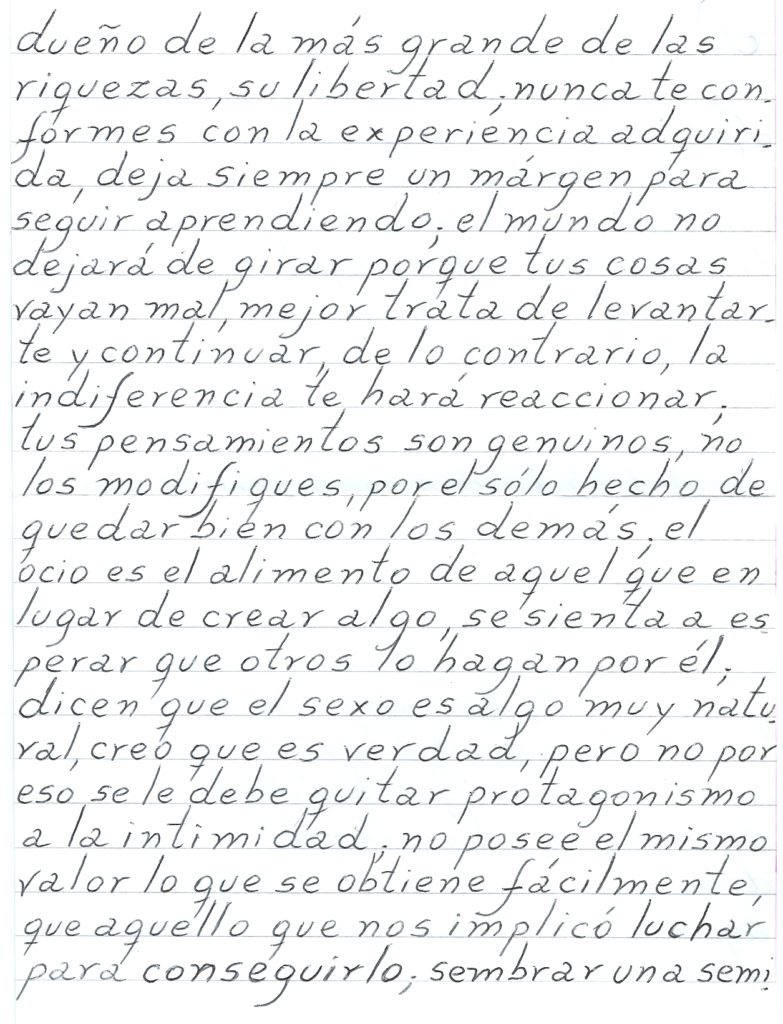 dueño de la más grande de las
riquezas, su libertad; nunca te con-
formes con la experiencia adquiri-
da, deja siempre un márgen para
seguir aprendiendo; el mundo no
dejará de girar porque tus cosas
vayan mal, mejor trata de levantar-
te y continuar, de lo contrario, la
indiferencia te hará reaccionar;
tus pensamientos son genuinos, no
los modifiques, por el sólo hecho de
quedar bien con los demás; el
ocio es el alimento de aquel que en
lugar de crear algo, se sienta a es
perar que otros lo hagan por él;
dicen que el sexo es algo muy natu-
ral, creo que es verdad, pero no por
eso se le debe quitar protagonismo
a la intimidad; no posee el mismo
valor lo que se obtiene fácilmente,
que aquello que nos implicó luchar
para conseguirlo; sembrar una semi-